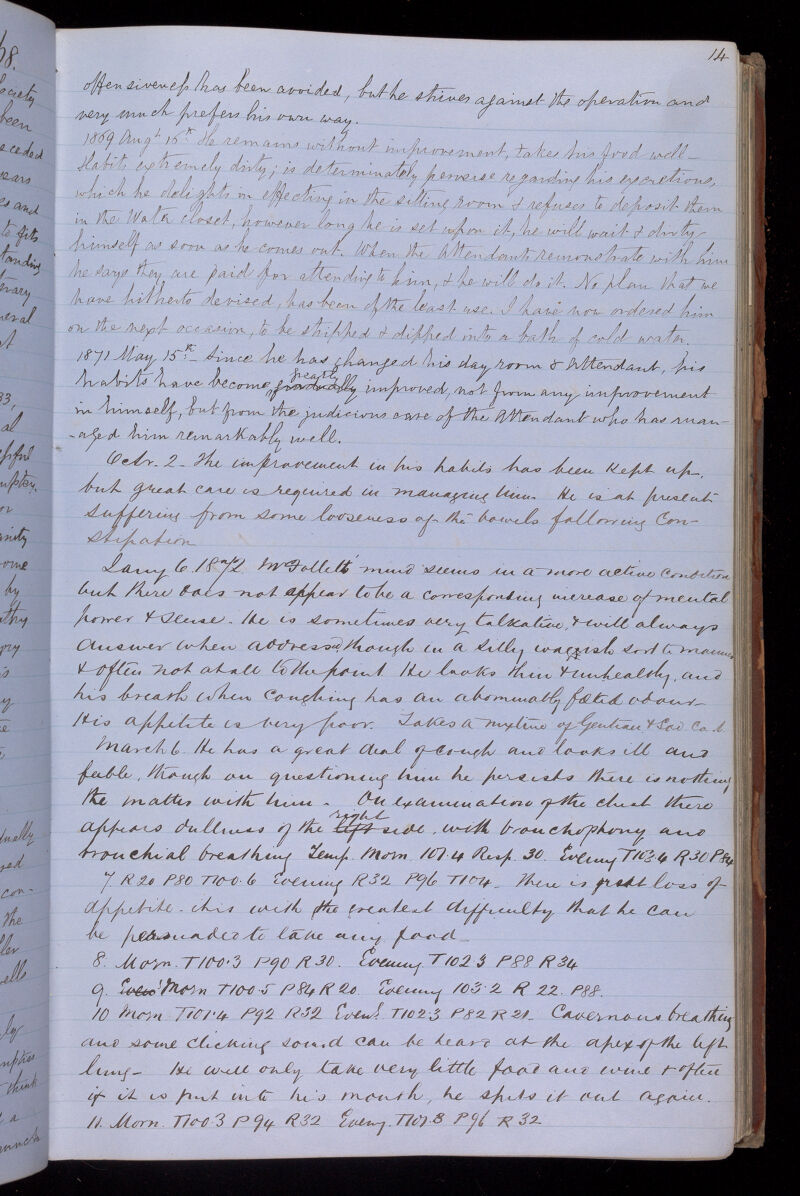 14
offensiveness has been avoided, but he strives against the operation and
very much prefers his own way.
1869 Augt 16th He remains without improvement, takes his food well –
Habits extremely dirty; is determinately perverse regarding his excretions,
which he delights in effecting in the sitting room & refuses to deposit them
in the Water closet, however long he is set upon it, he will wait & dirty
himself as soon as he comes out. When the Attendants remonstrate with him
he says they are paid for attending to him, & he will do it. No plan that we
have hitherto devised, has been of the least use. I have now ordered him
on the next occasion, to be stripped & dipped into a bath of cold water.
1871 May, 15th Since he has changed his day room & Attendant, his
habits have become greatly improved, not from any improvement
in himself, but from the judicious care of the Attendant who has man-
-aged him remarkably well.
Octr. 2. The improvement in his habits has been kept up,
but great care is required in managing him. He is at present
suffering from some looseness of the bowels following Con-
stipation
Jany 6. 1872 Mr Follett's mind seems in a more active condition
but there does not appear to be a corresponding increase of mental
power & sense. He is sometimes very talkative & will always
answer when addressed, though in a silly waggish sort of manner
& often not at all to the point He looks thin & unhealthy, and
his breath when coughing has an abominably fœted odour –
His appetite is very poor. Takes a mixture of Gentian & Sod. Carb.
March 6. He has a great deal of cough and looks ill and
feeble, though on questioning him he persists there is nothing
the matter with him – On examination of the chest there
appears dullness of the left right side, with bronchophony and
bronchial breathing Temp. Morn 101.4 Resp. 30. Evening T103.4 R30 P84
7 R20 P80 T100.6 Evening R32 P96 T104 – There is great loss of
appetite – it is with the greatest difficulty that he can
be persuaded to take any food –
8. Morn. T100.3 P90 R30. Evening T102.3 P88 R34
9. Even Morn T100.5 P84 R20 Evening 103.2 R 22. P88.
10 Morn T101.4 P92 R32 Eveng. T102.3 P82 R21. Cavernous breathing
and some clicking sound can be heard at the apex of the left
lung – He will only take very little food and wine & often
if it is put into his mouth, he spits it out again.
11. Morn. T100.3 P94 R32 Eveng. T101.8 P96 R32